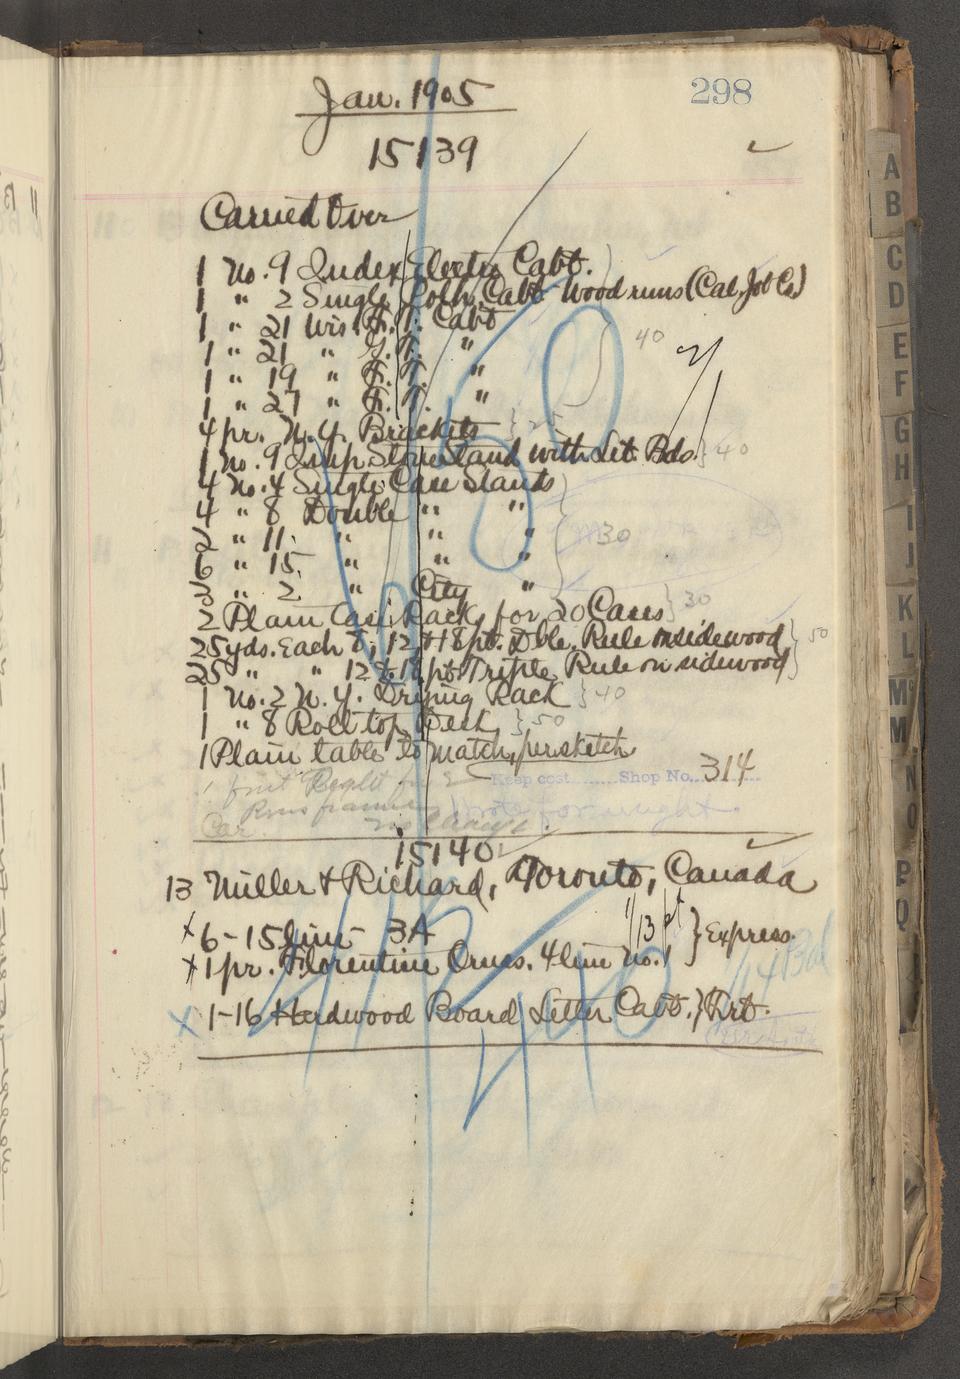 298
Jan. 1905
15139
Carried Over
1 No. 9 Index Electro Cabt.
1 " 2 Single Cabt. Wood runs (Cal. Job Co.)
1 " 21 Wis. F. T. Cabt
1 " 21 " G. T. "
1 " 19 " F. T. "
1 " 27 " F. T. "
40
4 pr. N. Y. Brackets } 25
1 No. 9 Imp. Stone Stand with Let. Bds. } 40
4 No. 4 Single Case Stands
4 " 8 Double " "
2 " 11 " " "
6 " 15 " " " 30
2 " 2 " City "
2 Plain Case Racks for 20 Cases } 30
25 yds. Each 6, 12, & 18 pt. Dble. Rule on sidewood } 50
25 " " 12 & 18 pt. Triple Rule on sidewood
1 No. 2 N. Y. Drying Rack } 40
1 " 8 Roll top Desk } 50
1 Plain table to match, per sketch
Keep cost........Shop No. 314
15140
13 Miller & Richard, Toronto, Canada
1/13 pt
x 6-15 line 3A } Express.
x 1 pr. Florentine Orns. 4 line No. 1
x 1-16 Hardwood Board Letter Cabt. } Frt.
A
B
C
D
E
F
G
H
I
J
K
L
M
M
N
O
P
Q